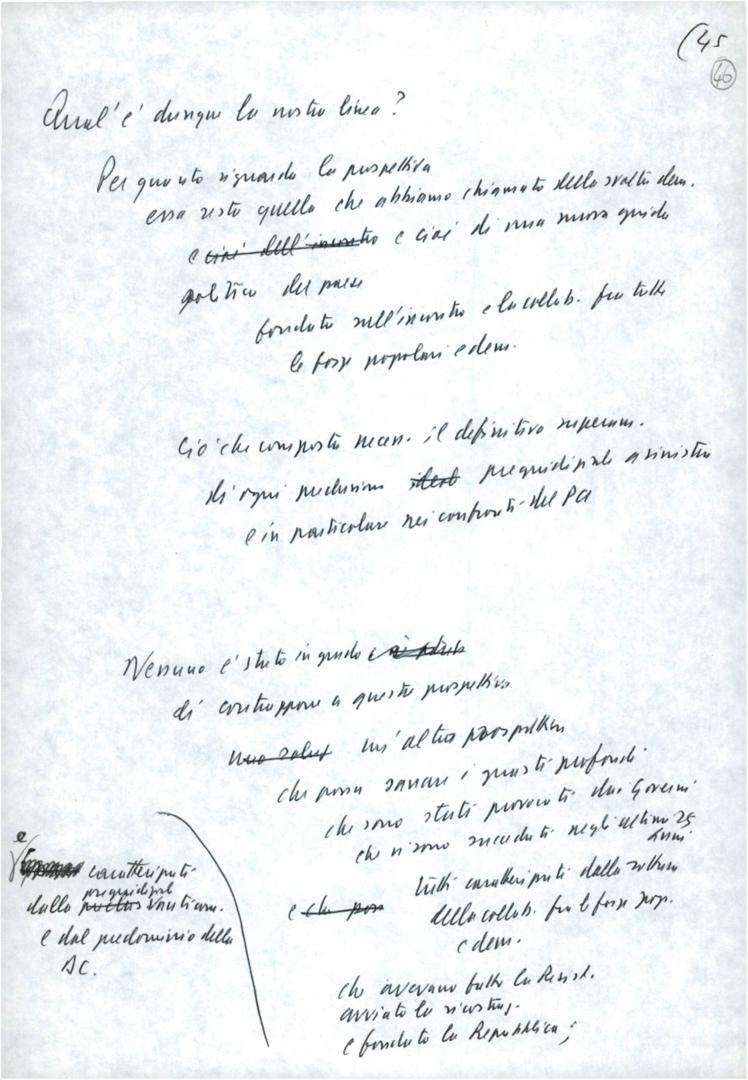 (45
46
Qual'è dunque la nostra linea?
Per quanto riguarda la prospettiva
essa resta quella che abbiamo chiamato della svolta dem.
e cioè dell'incontro e cioè di una nuova guida
politica del paese
fondata sull'incontro e la collab. fra tutte
le forze popolari e dem.
Ciò che comporta necess. il definitivo superam.
di ogni preclusione pregiudiziale a sinistra
e in particolare nei confronti del PCI
Nessuno è stato in grado
di contrapporre a questa prospettiva
una soluz un'altra prospettiva
che possa sanare i guasti profondi
che sono stati provocati dai Governi
che si sono succeduti negli ultimi 25
anni
e che pos tutti caratterizzati dalla rottura
della collab. fra le forze pop.
e dem.
che avevano fatto la Resist.
avviato la ricostruz.
e fondato la Repubblica;
e
caratterizzati
pregiudiziale
dalla anticom.
e dal predominio della
DC.